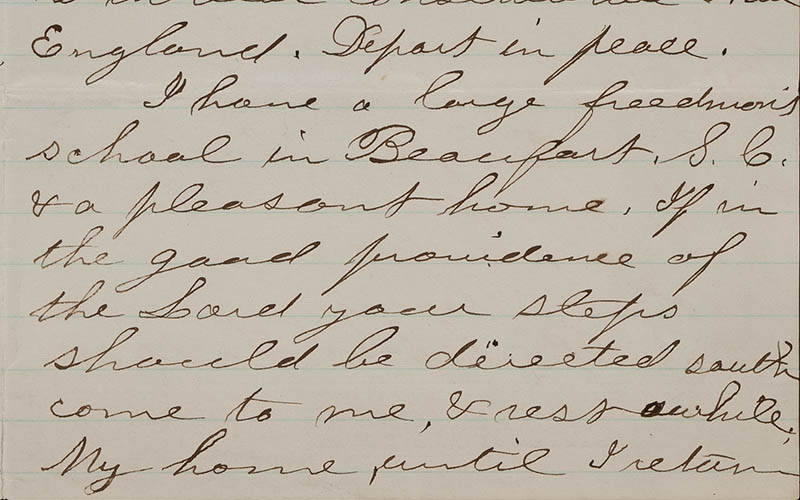 England. Depart in peace.
I have a large freedmen's
school in Beaufort, S. C.
& a pleasant home. If in
the good providence of
the Lord your steps
should be directed south
come to me, & rest awhile.
My home, until I return